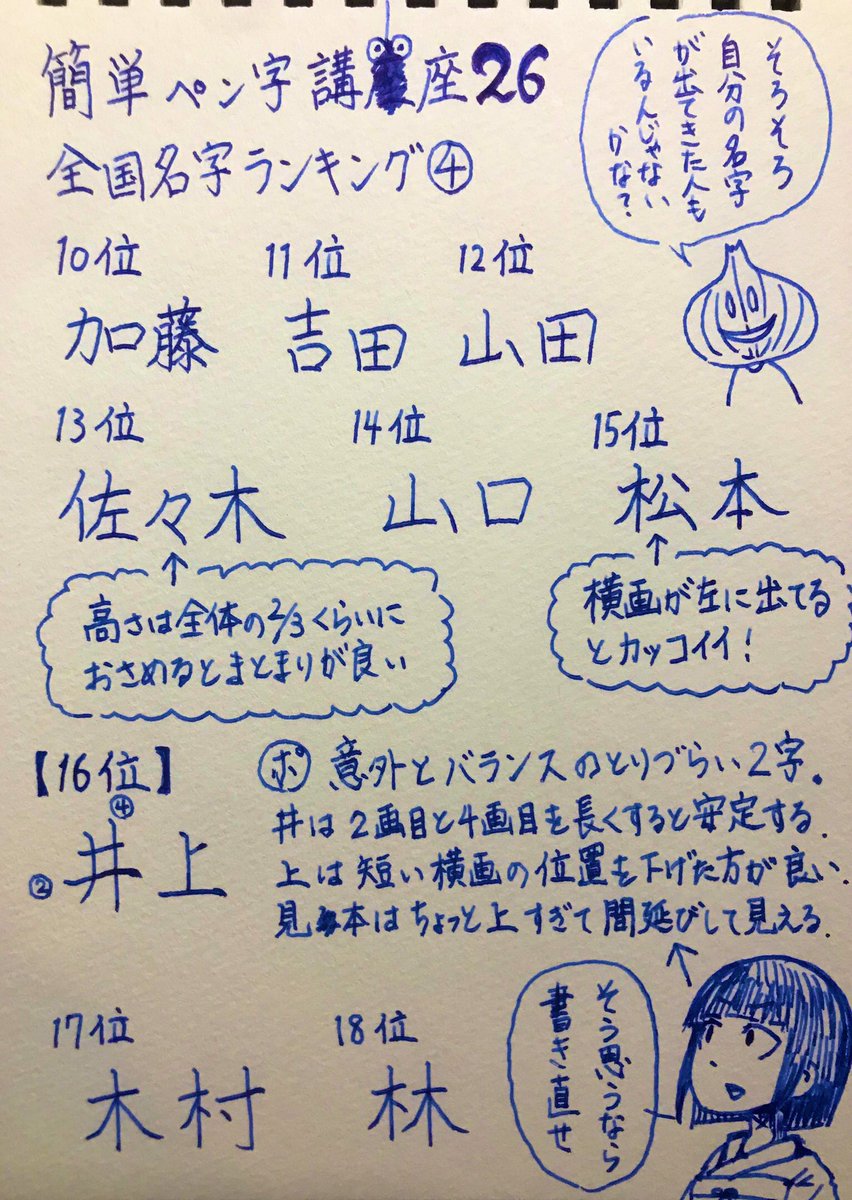 簡単ペン字講座26
全国名字ランキング④
そろそろ
自分の名字
が出てきた人も
いるんじゃない
かな?
10位 11位 12位
加藤 吉田 山田
13位 14位 15位
佐々木 山口 松本
↑ ↑
高さは全体の2/3くらいに
おさめるとまとまりが良い
横画が左に出てる
とカッコイイ!
【16位】
④
② 井上
ポ 意外とバランスのとりづらい2字。
井は2画目と4画目を長くすると安定する.
上は短い横画の位置を下げた方が良い.
見本はちょっと上すぎて間延びして見える.
17位 18位
木村 林
そう思うなら
書き直せ